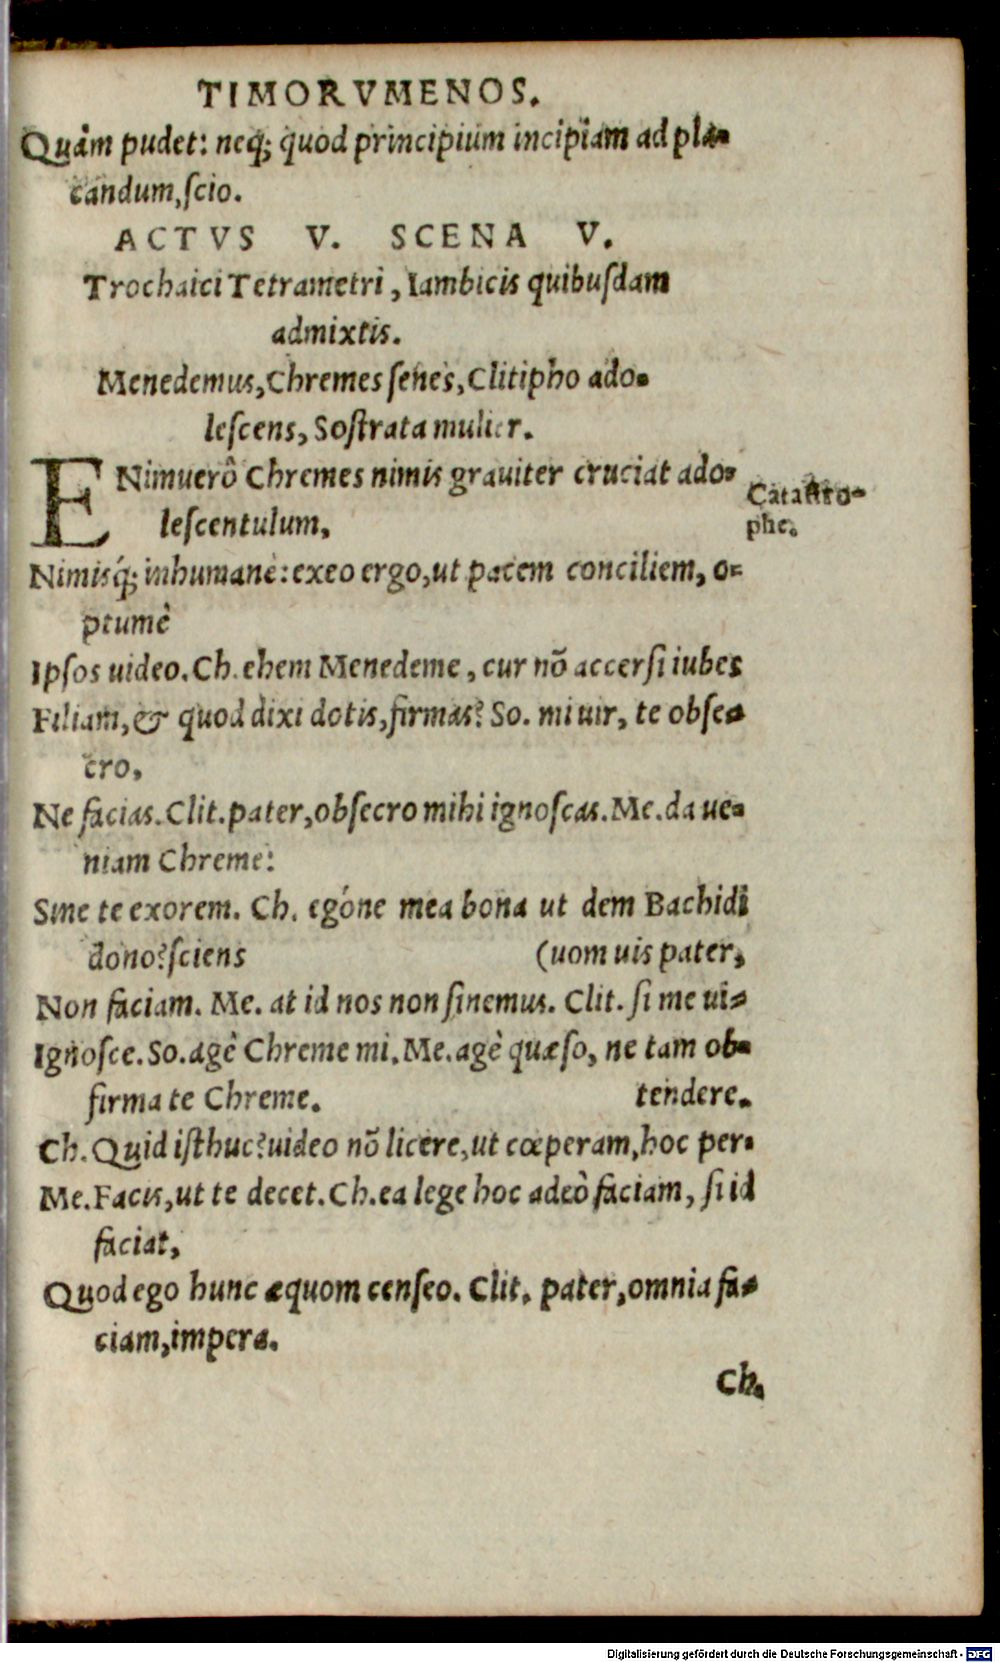 TIMORVMENOS.
Quàm pudet: neq; quod principium incipiam ad pla-
candum, ſcio.
ACTVS V. SCENA V.
Trochaici Tetrametri, Iambicis quibuſdam
admixtis.
Menedemus, Chremes ſenes, Clitipho ado-
leſcens, Soſtrata mulier.
ENimuerò Chremes nimis grauiter cruciat ado-
leſcentulum,
Catastro-
phe.
Nimisq́; inhumanè: exeo ergo, ut pacem conciliem, o-
ptumè
Ipſos uideo. Ch. ehem Menedeme, cur nō accerſi iubes
Filiam, & quod dixi dotis, firmas? So. mi uir, te obſe-
cro,
Ne facias. Clit. pater, obſecro mihi ignoſcas. Me. da ue-
niam Chreme:
Sine te exorem. Ch. egóne mea bona ut dem Bachidi
dono? ſciens (uom uis pater,
Non faciam. Me. at id nos non ſinemus. Clit. ſi me ui-
Ignoſce. So. agè Chreme mi. Me. agè quæſo, ne tam ob-
firma te Chreme. tendere.
Ch. Quid iſthuc? uideo nō licere, ut cœperam, hoc per-
Me. Facis, ut te decet. Ch. ea lege hoc adeò faciam, ſi id
faciat,
Quod ego hunc æquom cenſeo. Clit. pater, omnia fa-
ciam, impera.
Ch.
Digitalisierung gefördert durch die Deutsche Forschungsgemeinschaft - DFG